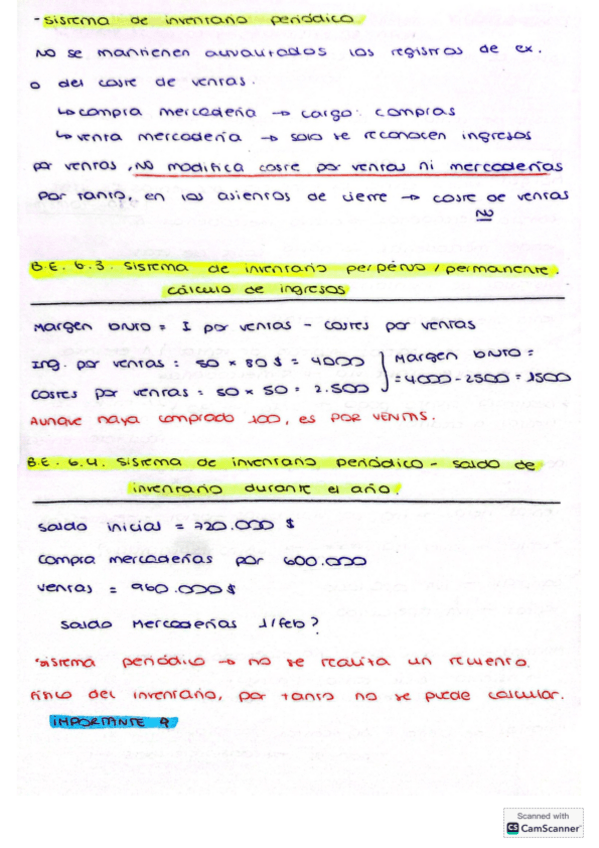 - sistema de inventario periódico
No se mantienen actualizados los registros de ex.
o del coste de ventas.
↳ compra mercadería → cargo: compras
↳ venta mercadería → solo se reconocen ingresos
por ventas, NO modifica coste por ventas ni mercaderías
Por tanto, en los asientos de cierre → coste de ventas
B.E. 6.3. sistema de inventario perpetuo / permanente.
cálculo de ingresos
Margen bruto = I por ventas - costes por ventas
Ing. por ventas: 50 x 80 $ = 4000
Margen bruto =
= 4000 - 2500 = 1500
costes por ventas = 50 x 50 = 2.500
Aunque haya comprado 100, es POR VENTAS.
B.E. 6.4. sistema de inventario periódico - saldo de
inventario durante el año.
saldo inicial = 720.000 $
compra mercaderías por 600.000
ventas = 960.000 $
saldo Mercaderías 1/feb?
sistema periódico → no se realiza un recuento
físico del inventario, por tanto no se puede calcular.
IMPORTANTE
Scanned with
CS CamScanner